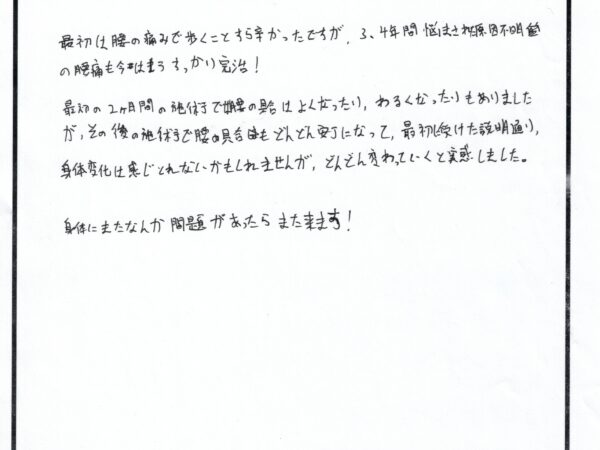 最初は腰の痛みで歩くことすら辛かったですが、3、4年間悩まされ原因不明
の腰痛も今はもうすっかり完治!
最初の2ヶ月間の施術で腰の具合はよくなったり、わるくなったりもありました
が、その後の施術で腰の具合もどんどん安定になって、最初受けた説明通り、
身体変化は感じとれないかもしれませんが、どんどん変わっていくと実感しました。
身体にまたなんか問題があったらまた来ます!